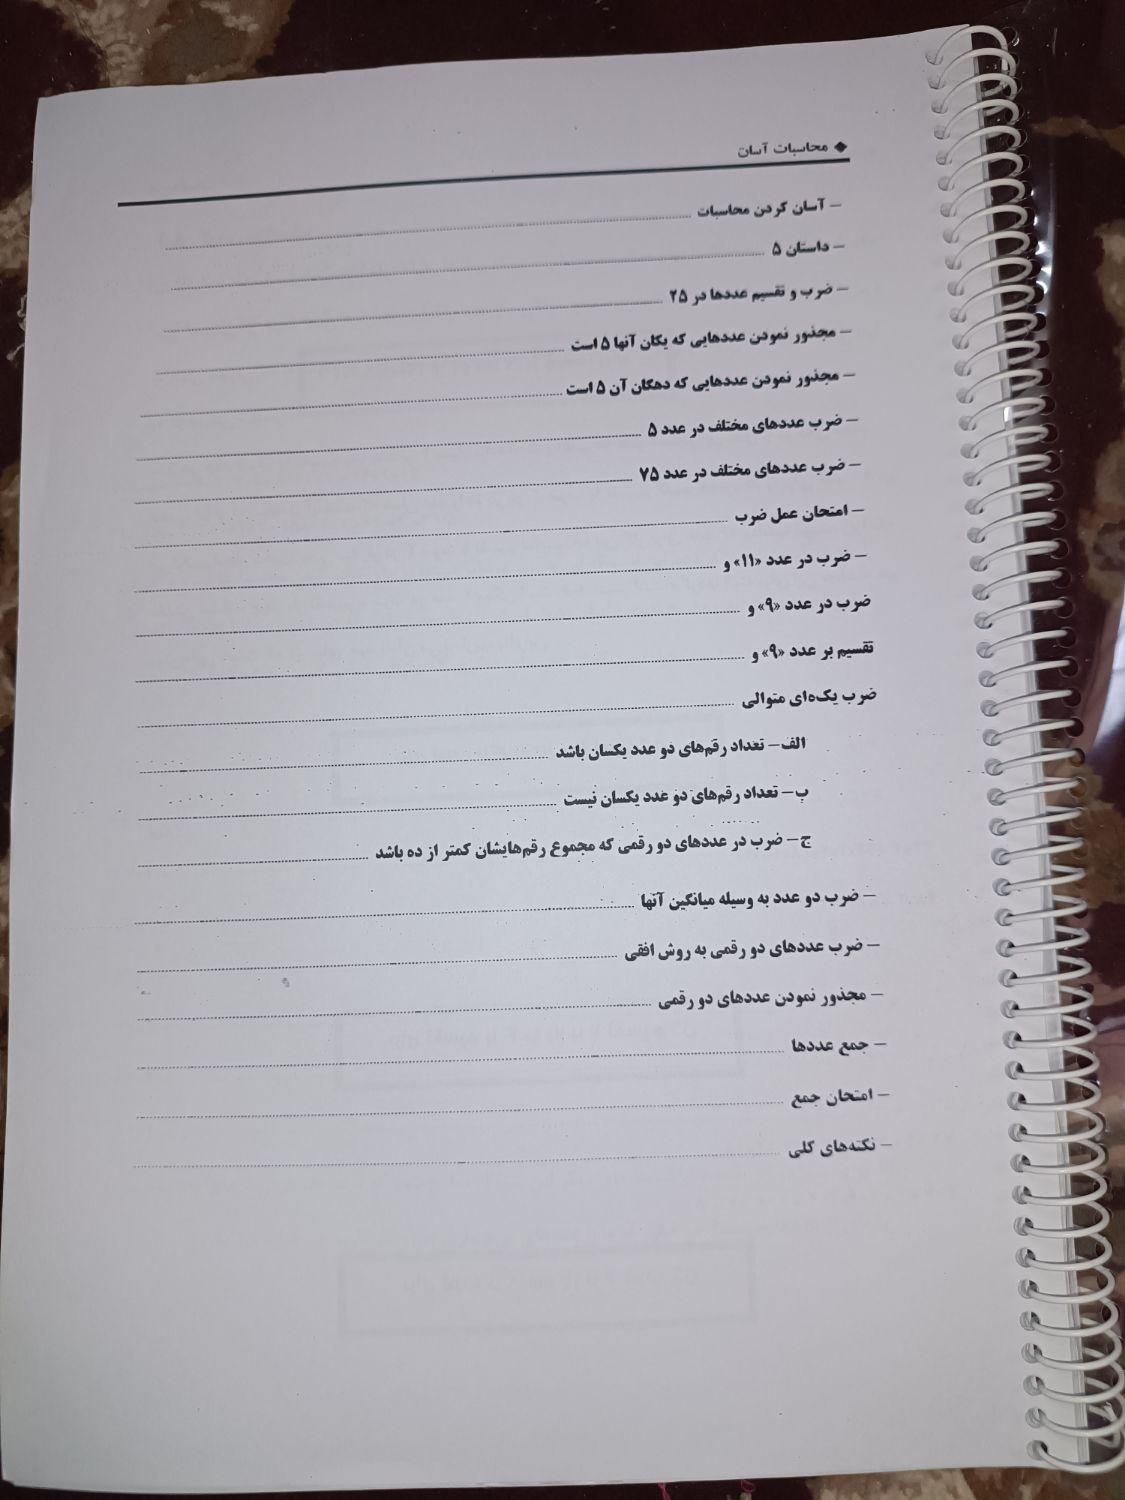 ◆ محاسبات آسان
– آسان کردن محاسبات
– داستان ۵
– ضرب و تقسیم عددها در ۲۵
– مجذور نمودن عددهایی که یکان آنها ۵ است
– مجذور نمودن عددهایی که دهگان آن ۵ است
– ضرب عددهای مختلف در عدد ۵
– ضرب عددهای مختلف در عدد ۷۵
– امتحان عمل ضرب
– ضرب در عدد «۱۱» و
ضرب در عدد «۹» و
تقسیم بر عدد «۹» و
ضرب یک‌های متوالی
الف– تعداد رقم‌های دو عدد یکسان باشد
ب– تعداد رقم‌های دو عدد یکسان نیست
ج– ضرب در عددهای دو رقمی که مجموع رقم‌هایشان کمتر از ده باشد
– ضرب دو عدد به وسیله میانگین آنها
– ضرب عددهای دو رقمی به روش افقی
– مجذور نمودن عددهای دو رقمی
– جمع عددها
– امتحان جمع
– نکته‌های کلی